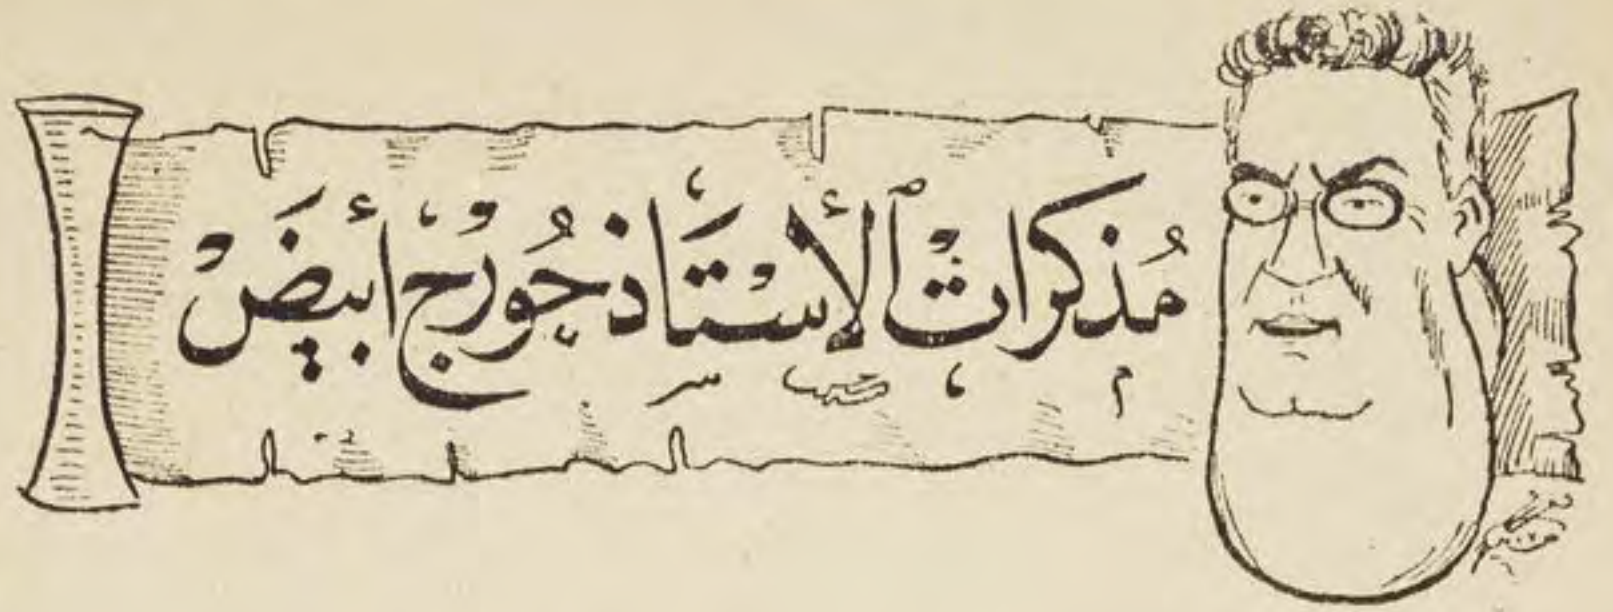 مُذكراتْ ٱلأسْتَاذ جُورْجْ أبيَضْ